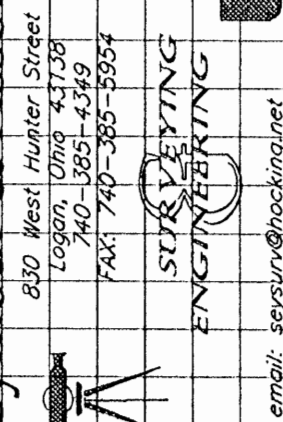 830 West Hunter Street
Logan, Ohio 43138
740-385-4349
FAX: 740-385-5954
SURVEYING
&
ENGINEERING
email: sevsurv@hocking.net